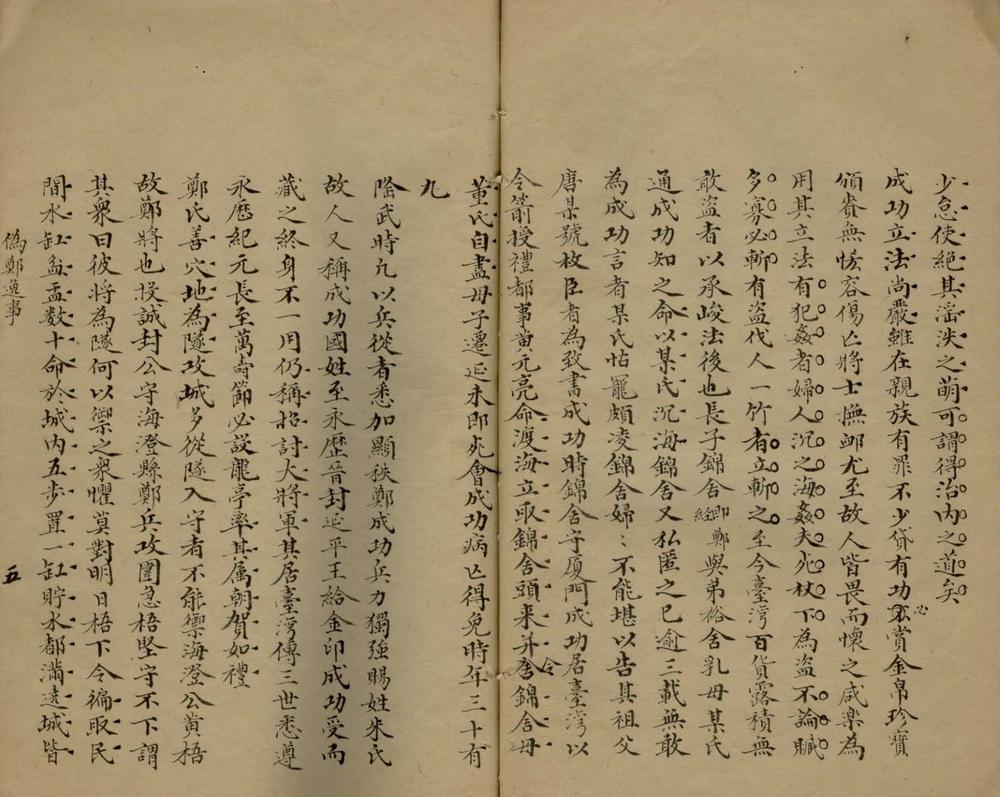 少怠使絕其淫泆之萌可謂得治内之道矣
成功立法尚嚴雖在親族有罪不少貸有功必賞金帛珍寶
頒賚無悋容傷亡將士撫卹尤至故人皆畏而懷之咸樂為
用其立法有犯姦者婦人沉之海姦夫死杖下為盜不論贓
多寡必斬有盜伐人一竹者立斬之至今臺灣百貨露積無
敢盜者以承峻法後也長子錦舍即鄭經與弟裕舍乳母某氏
通成功知之命以某氏沉海錦舍又私匿之已逾三載無敢
為成功言者某氏怙寵頗凌錦舍婦〻不能堪以告其祖父
唐某號枚臣者為致書成功時錦舍守厦門成功居臺灣以
令箭授禮都事黄元亮命渡海立取錦舍頭来并令錦舍母
董氏自盡母子遷延未即死會成功病亡得免時年三十有
九
隆武時凡以兵從者悉加顯秩鄭成功兵力獨強賜姓朱氏
故人又稱成功國姓至永歷晉封延平王給金印成功受而
藏之終身不一用仍稱招討大將軍其居臺灣傳三世悉遵
永歷紀元長至萬壽節必設龍亭率其属朝賀如禮
鄭氏善穴地為隧攻城多從隧入守者不能禦海澄公黄梧
故鄭將也投誠封公守海澄縣鄭兵攻圍急梧堅守不下謂
其衆曰彼將為隧何以禦之衆懼莫對明日梧下令徧取民
間水缸盆盂数十命於城内五步置一缸貯水都滿遶城皆
偽鄭逸事
五